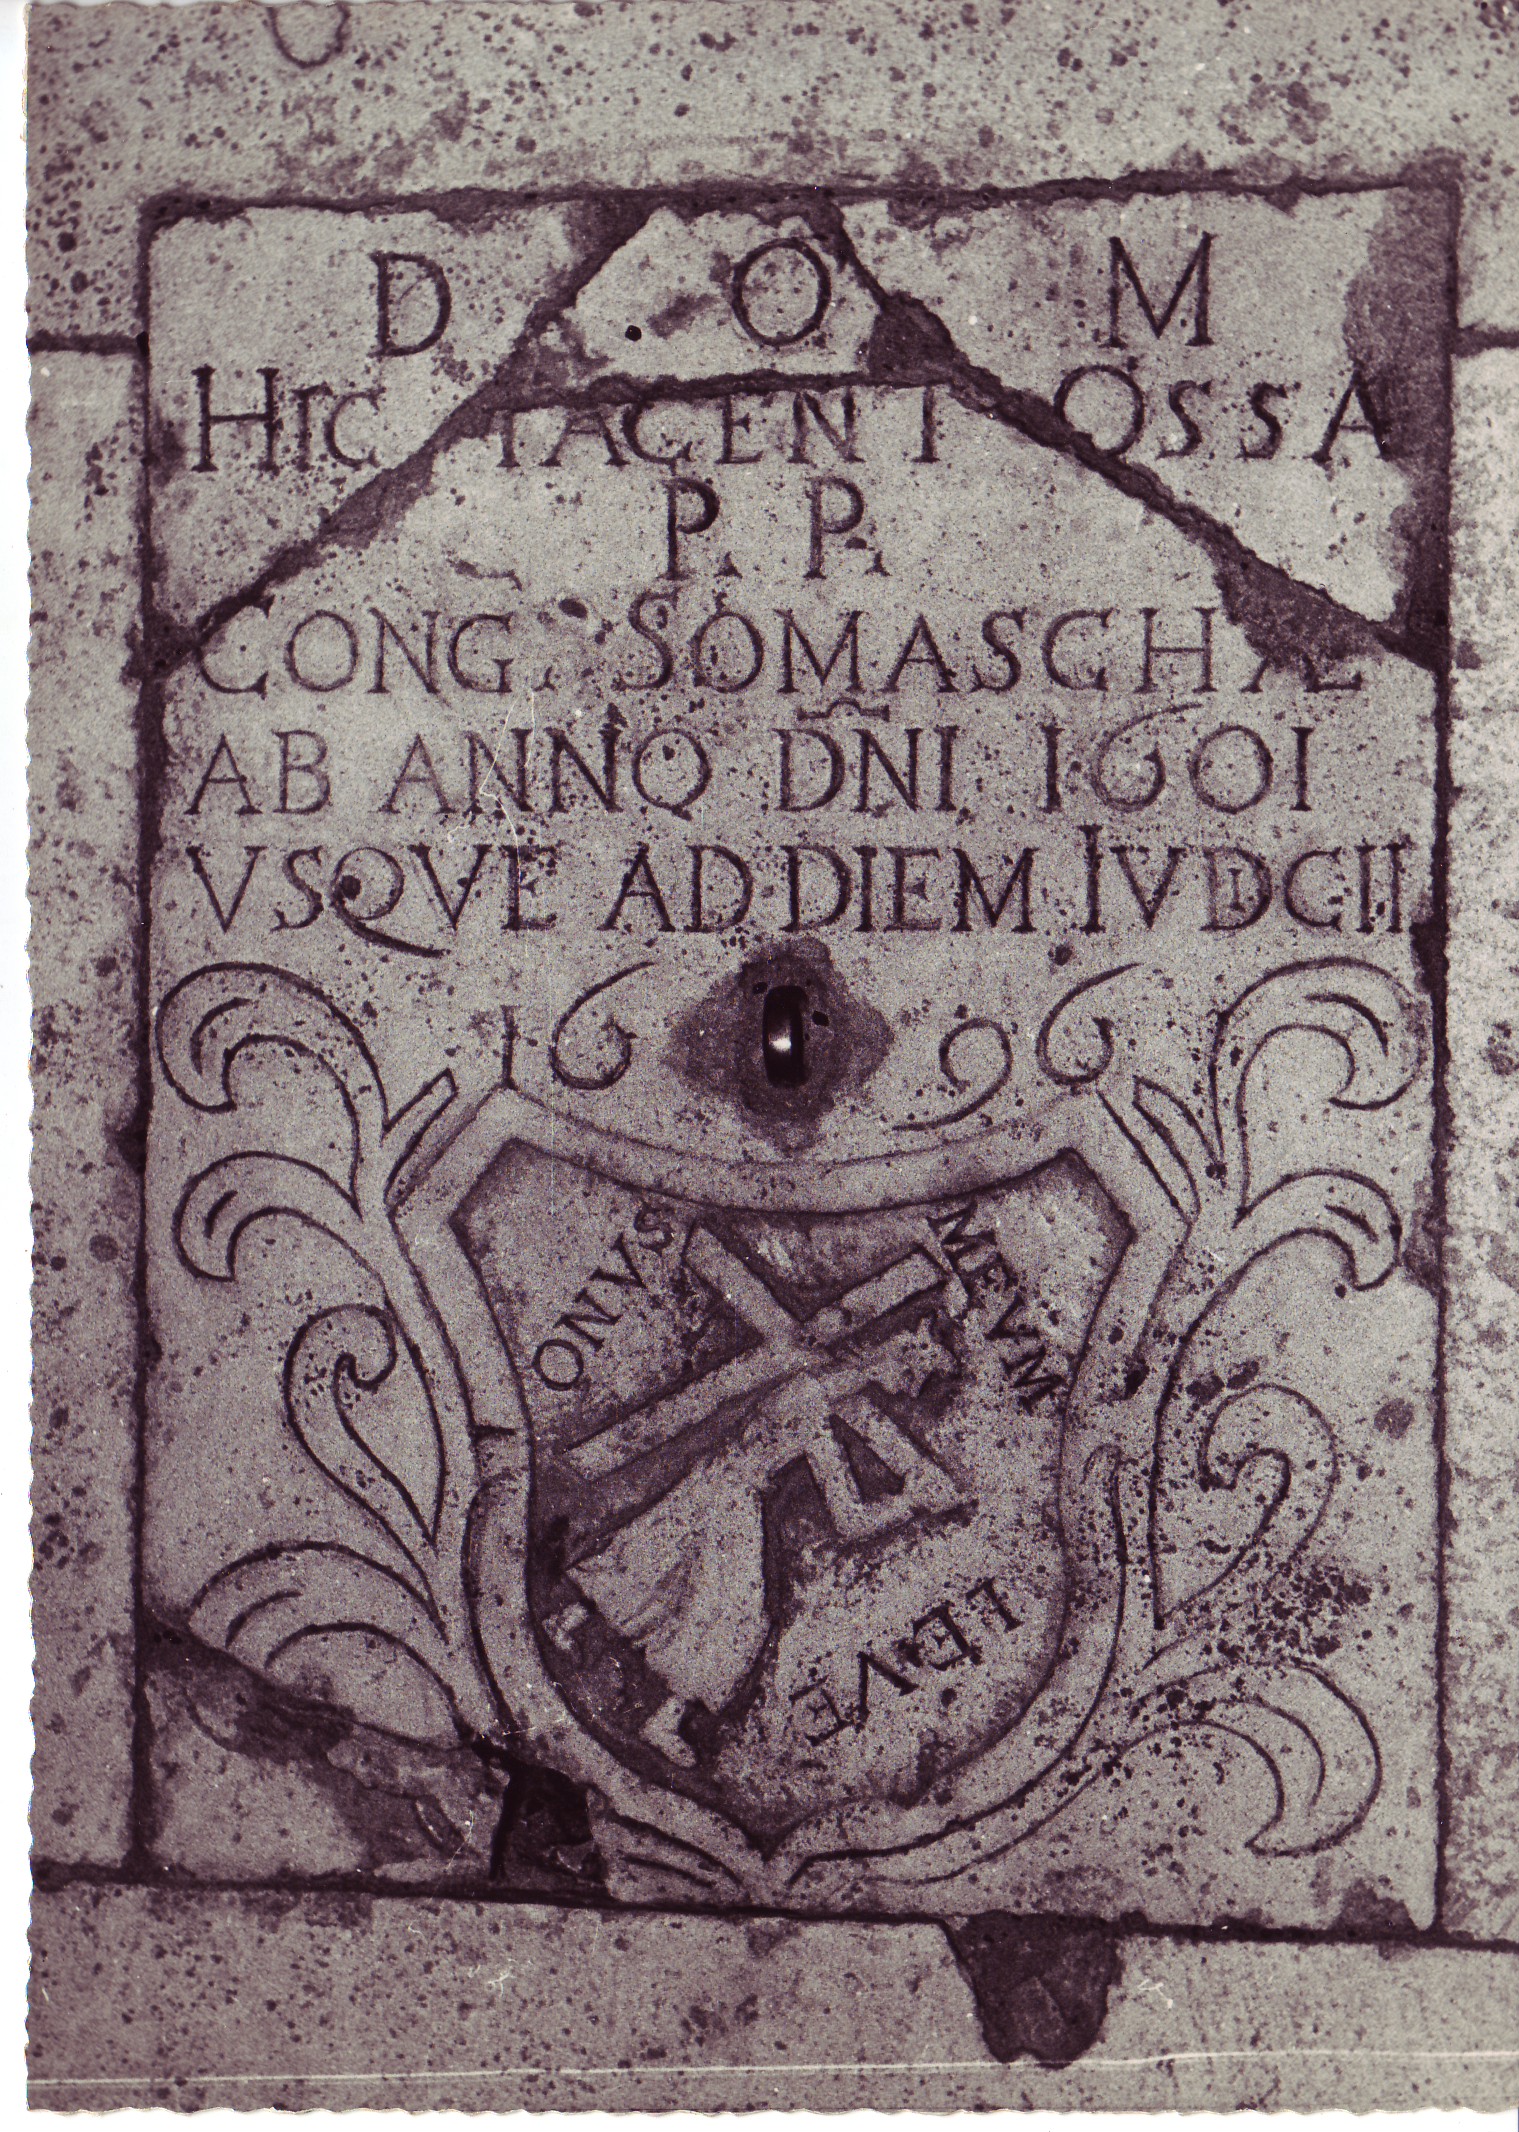 D O M
HIC IACENT OSSA
P. P.
CONG. SOMASCHÆ
AB ANNO DÑI 1601
VSQVE AD DIEM IVDICII
1696
ONVS MEVM
LEVE